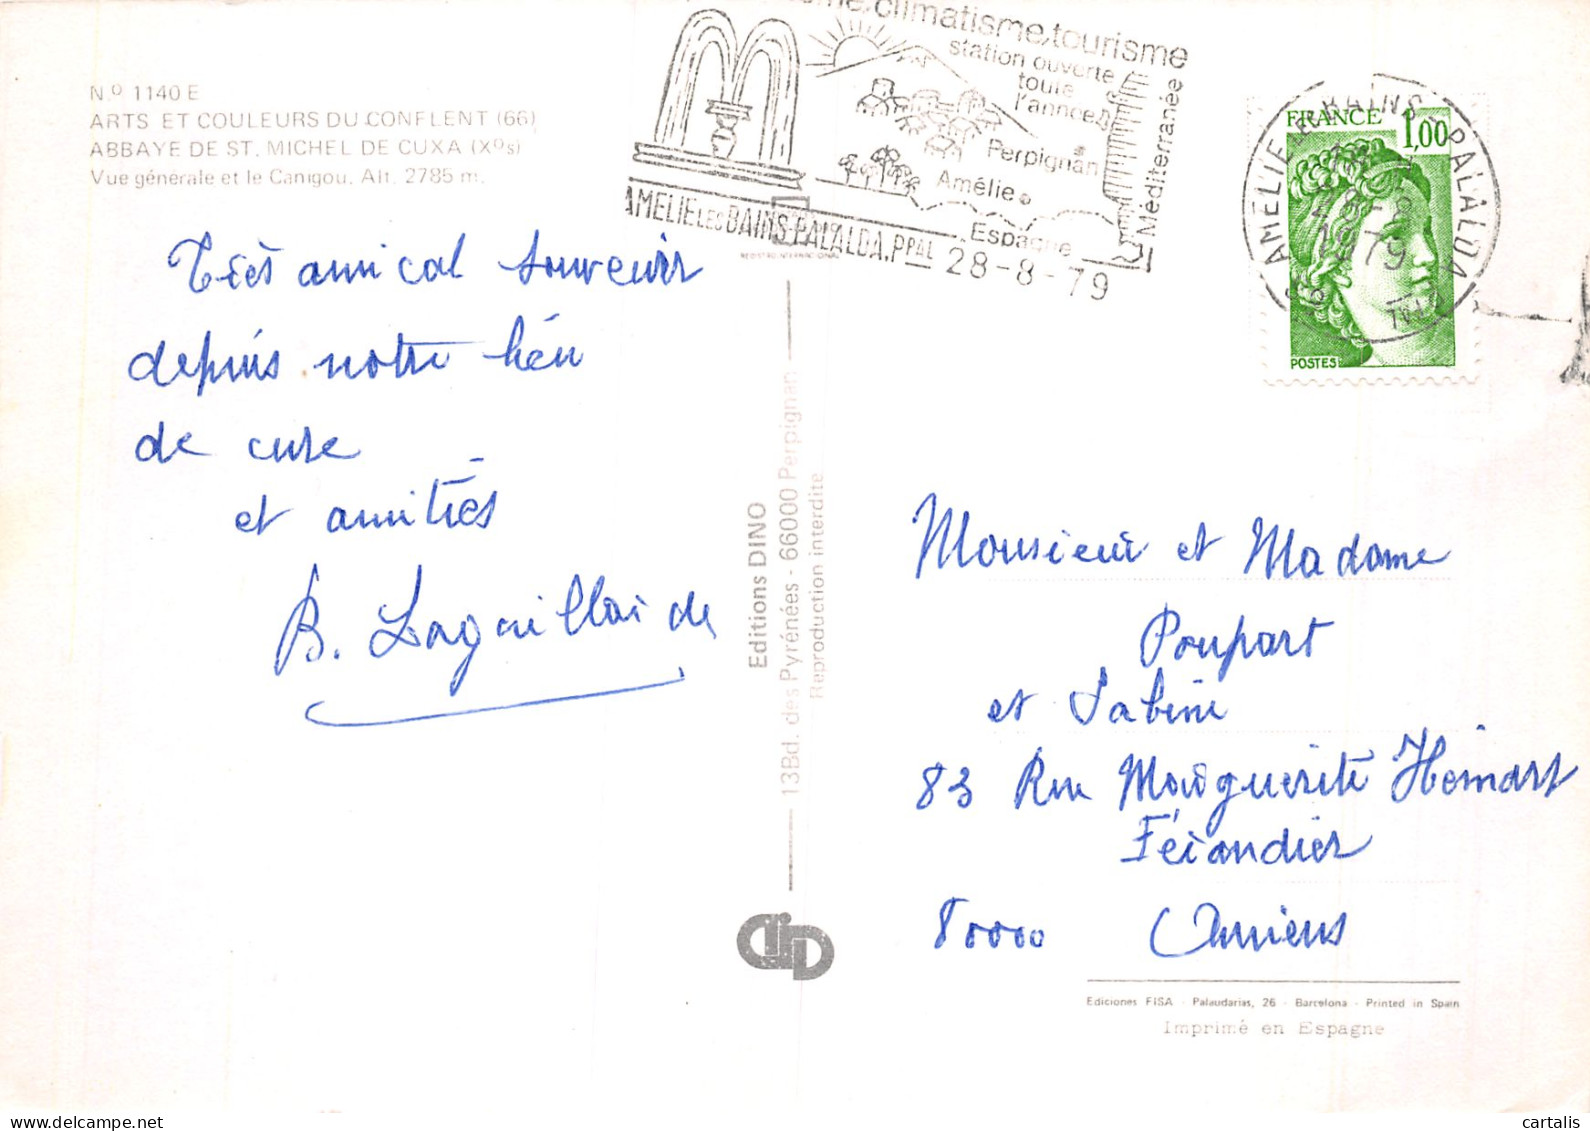 N.º 1140 E
ARTS ET COULEURS DU CONFLENT (66)
ABBAYE DE ST. MICHEL DE CUXA (Xºs)
Vue générale et le Canigou. Alt. 2785 m.
Très amical souvenir
depuis notre lieu
de cure
et amitiés
climatisme, tourisme
station ouverte
toute
l'année
Perpignan
Amélie
Espagne
Méditerranée
AMELIE LES BAINS. PALALDA. PPAL 28-8-79
AMELIE LES BAINS PALALDA
28-8
1979
FRANCE 1,00
POSTES
Editions DINO
13 Bd. des Pyrénées - 66000 Perpignan
Reproduction interdite
Monsieur et Madame
Poupart
et Sabine
83 Rue Marguerite
80000 Amiens
Ediciones FISA - Palaudarias, 26 - Barcelona - Printed in Spain
Imprimé en Espagne
cartalis